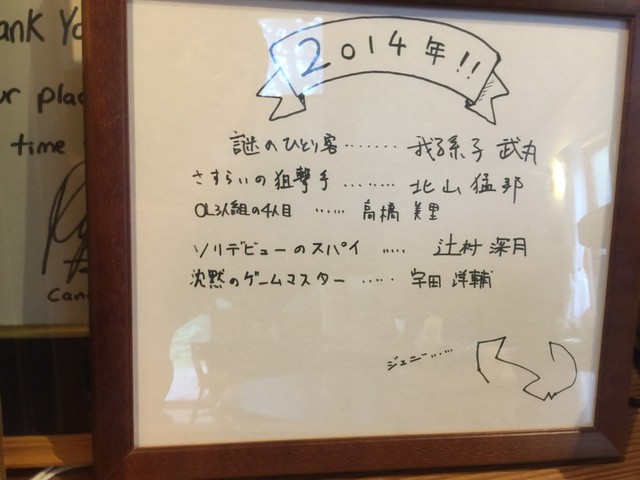 ank Yo
ur plac
time
Can
2014年!!
謎のひとり客……我孫子 武丸
さすらいの狙撃手………北山猛邦
OL3人組の4人目……高橋 美里
ソリデビューのスパイ……辻村 深月
沈黙のゲームマスター……宇田 洋輔
ジェニー……